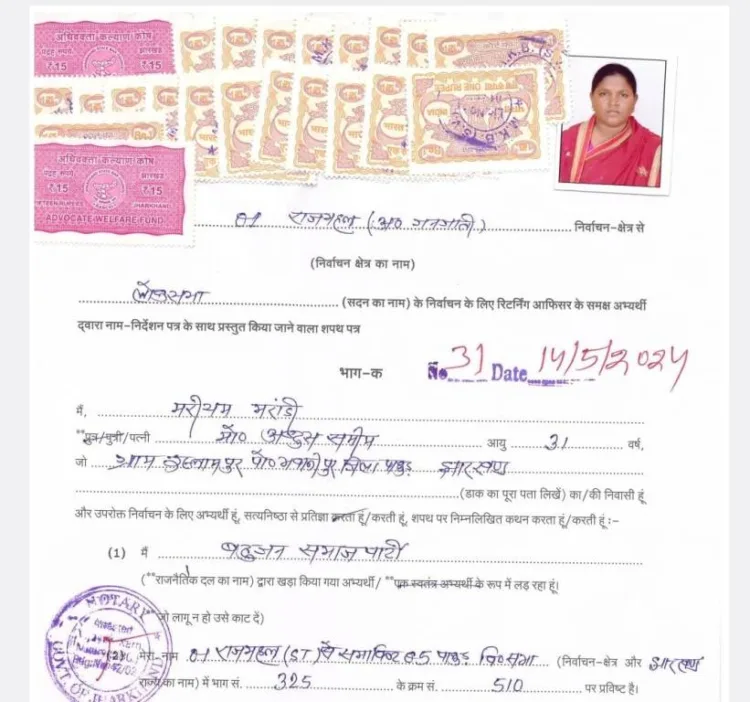 अधिवक्ता कल्याण कोष
पंद्रह रूपये झारखंड
₹15 ₹15
अधिवक्ता कल्याण कोष
पंद्रह रूपये झारखंड
₹15 ₹15
FIFTEEN RUPEES JHARKHAND
ADVOCATE WELFARE FUND
ONE RUPEE
INDIA
01 राजमहल (अ० जनजाति) निर्वाचन-क्षेत्र से
(निर्वाचन क्षेत्र का नाम)
लोकसभा (सदन का नाम) के निर्वाचन के लिए रिटर्निंग आफिसर के समक्ष अभ्यर्थी
द्वारा नाम-निर्देशन पत्र के साथ प्रस्तुत किया जाने वाला शपथ पत्र
भाग-क
No. 31 Date 14/5/2024
मैं, मरीयम मरांडी
**पुत्र/पुत्री/पत्नी मो० अब्दुस समीम आयु 31 वर्ष,
जो ग्राम इस्लामपुर पो० जिला पाकुड़ झारखण्ड
(डाक का पूरा पता लिखें) का/की निवासी हूं
और उपरोक्त निर्वाचन के लिए अभ्यर्थी हूं, सत्यनिष्ठा से प्रतिज्ञा करता हूं/करती हूं, शपथ पर निम्नलिखित कथन करता हूं/करती हूं :-
(1) मैं बहुजन समाज पार्टी
(**राजनैतिक दल का नाम) द्वारा खड़ा किया गया अभ्यर्थी/ **एक स्वतंत्र अभ्यर्थी के रूप में लड़ रहा हूं।
जो लागू न हो उसे काट दें)
(2) मेरा नाम 01 राजमहल (ST) के समाविष्ट 05 पाकुड़ वि०सभा (निर्वाचन-क्षेत्र और झारखण्ड
राज्य का नाम) में भाग सं. 325 के क्रम सं. 510 पर प्रविष्ट है।
NOTARY
GOVT OF JHARKHAND